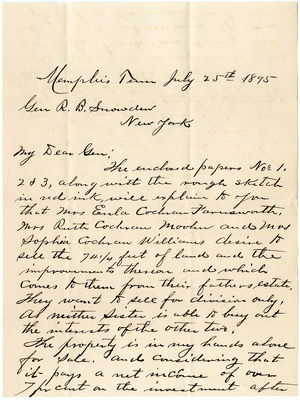 Memphis Tenn July 25th 1895
Gen R. B. Snowden
New York
My Dear Gen;
The enclosed papers Nos 1.
2 & 3, along with the rough sketch
in red ink, will explain to you
that Mrs Eula Cochran Farnsworth,
Mrs Ruth Cochran and Mrs
Sophia Cochran Williams desire to
sell the 74 1/4 feet of land and the
improvements thereon and which
comes to them from their fathers estate,
They want to sell for division only,
As neither Sister is able to buy out
the interests of the other two.
The property is in my hands alone
for Sale. and considering that
it pays a net income of over
7 pr cent on the investment after